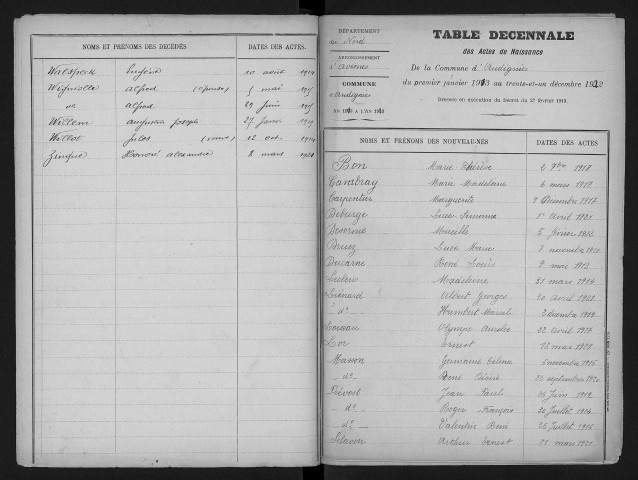 NOMS ET PRÉNOMS DES DÉCÉDÉS DATES DES ACTES.
Walspeck Eugénie 20 août 1914
Wignolle Alfred (épouse) 5 mai 1915
do Alfred 29 juin 1915
Willem Augustin Joseph 27 janvier 1919
Willot Jules (veuve) 12 oct. 1914
Zinque Honoré Alexandre 8 mars 1921
DÉPARTEMENT
du Nord
ARRONDISSEMENT
d'Avesnes
COMMUNE
d'Audignies
AN 1913 A L'AN 1922
TABLE DÉCENNALE
des Actes de Naissance
De la Commune d'Audignies
du premier janvier 1913 au trente-et-un décembre 1922
Dressée en exécution du Décret du 27 février 1913.
NOMS ET PRÉNOMS DES NOUVEAU-NÉS DATES DES ACTES
Bon Marie Thérèse 2 1917
Cambray Marie Madeleine 6 mars 1919
Carpentier Marguerite 9 Décembre 1917
Deburge Luce Simonne 1er Avril 1921
Mireille 5 février 1922
Luce Marie 7 novembre 1920
Ducarne René Louis 9 mai 1913
Leclerc Madeleine 31 mars 1914
Liénard Albert Georges 20 Avril 1921
- do - Humbert Marcel 3 Décembre 1919
Loiseau Olympe Aurélie 22 Avril 1917
Lor Ernest 28 mai 1920
Masson Germaine Célina 5 novembre 1915
- do René Désiré 22 septembre 1920
Prévost Jean Paul 26 Juin 1912
- do - Roger François 20 Juillet 1914
- do - Valentin René 26 Juillet 1916
Arthur Ernest 21 mars 1921